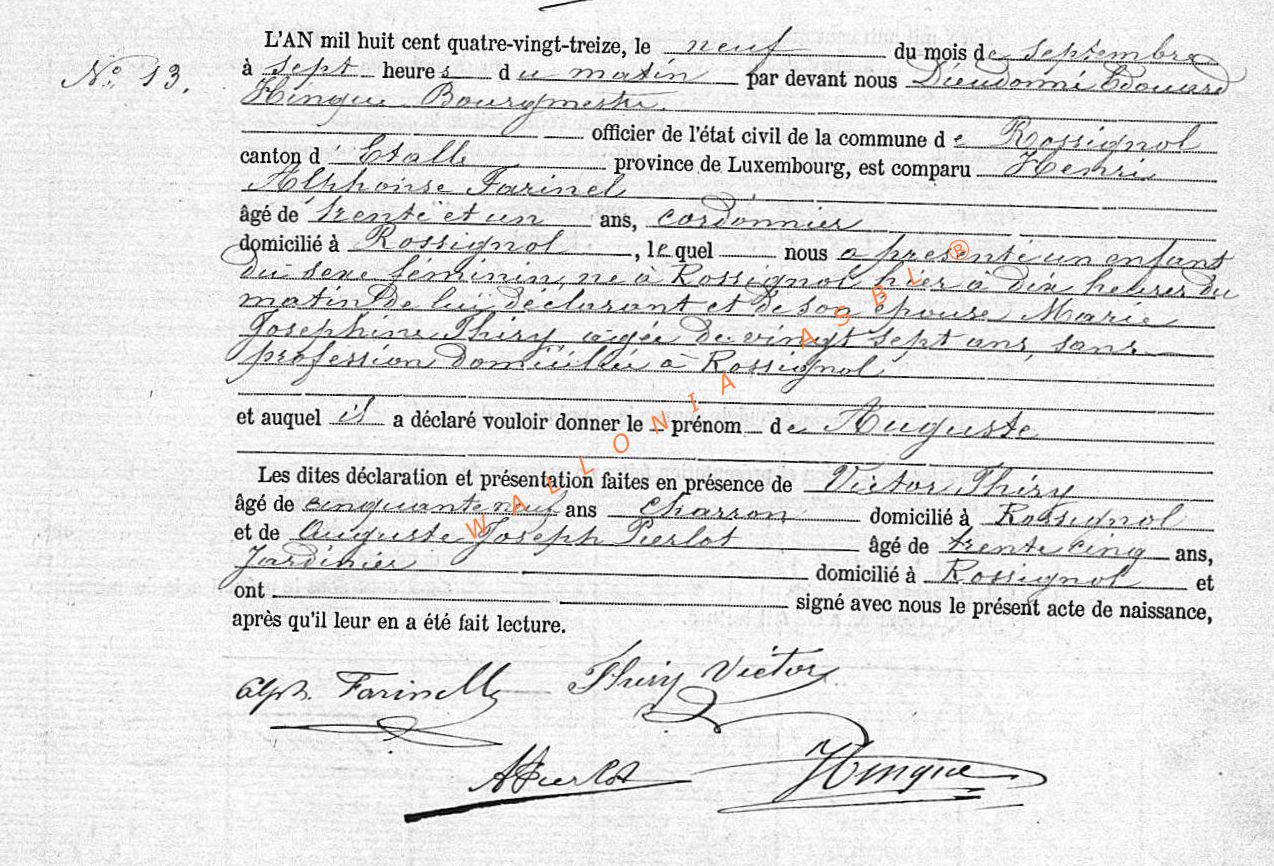 L'AN mil huit cent quatre-vingt-treize, le neuf du mois de septembre
N° 13.
à sept heures du matin par devant nous Dieudonné Edouard
Hinque Bourgmestre.
officier de l'état civil de la commune de Rossignol
canton d'Etalle province de Luxembourg, est comparu Henri
Alphonse Farinel
âgé de trente et un ans, cordonnier
domicilié à Rossignol, lequel nous a présenté un enfant
du sexe féminin, né à Rossignol hier à dix heures du
matin de lui déclarant et de son épouse Marie
Josephine Thiry agée de vingt sept ans, sans
profession domiciliée à Rossignol
et auquel il a déclaré vouloir donner le prénom de Auguste
Les dites déclaration et présentation faites en présence de Victor Thiry
âgé de cinquante neuf ans Charron domicilié à Rossignol
et de Auguste Joseph Pierlot âgé de trente cinq ans,
Jardinier domicilié à Rossignol et
ont signé avec nous le présent acte de naissance,
après qu'il leur en a été fait lecture.
Alph. Farinelle Thiry Victor
APierlot Hinque
WALLONIA ASBL ®